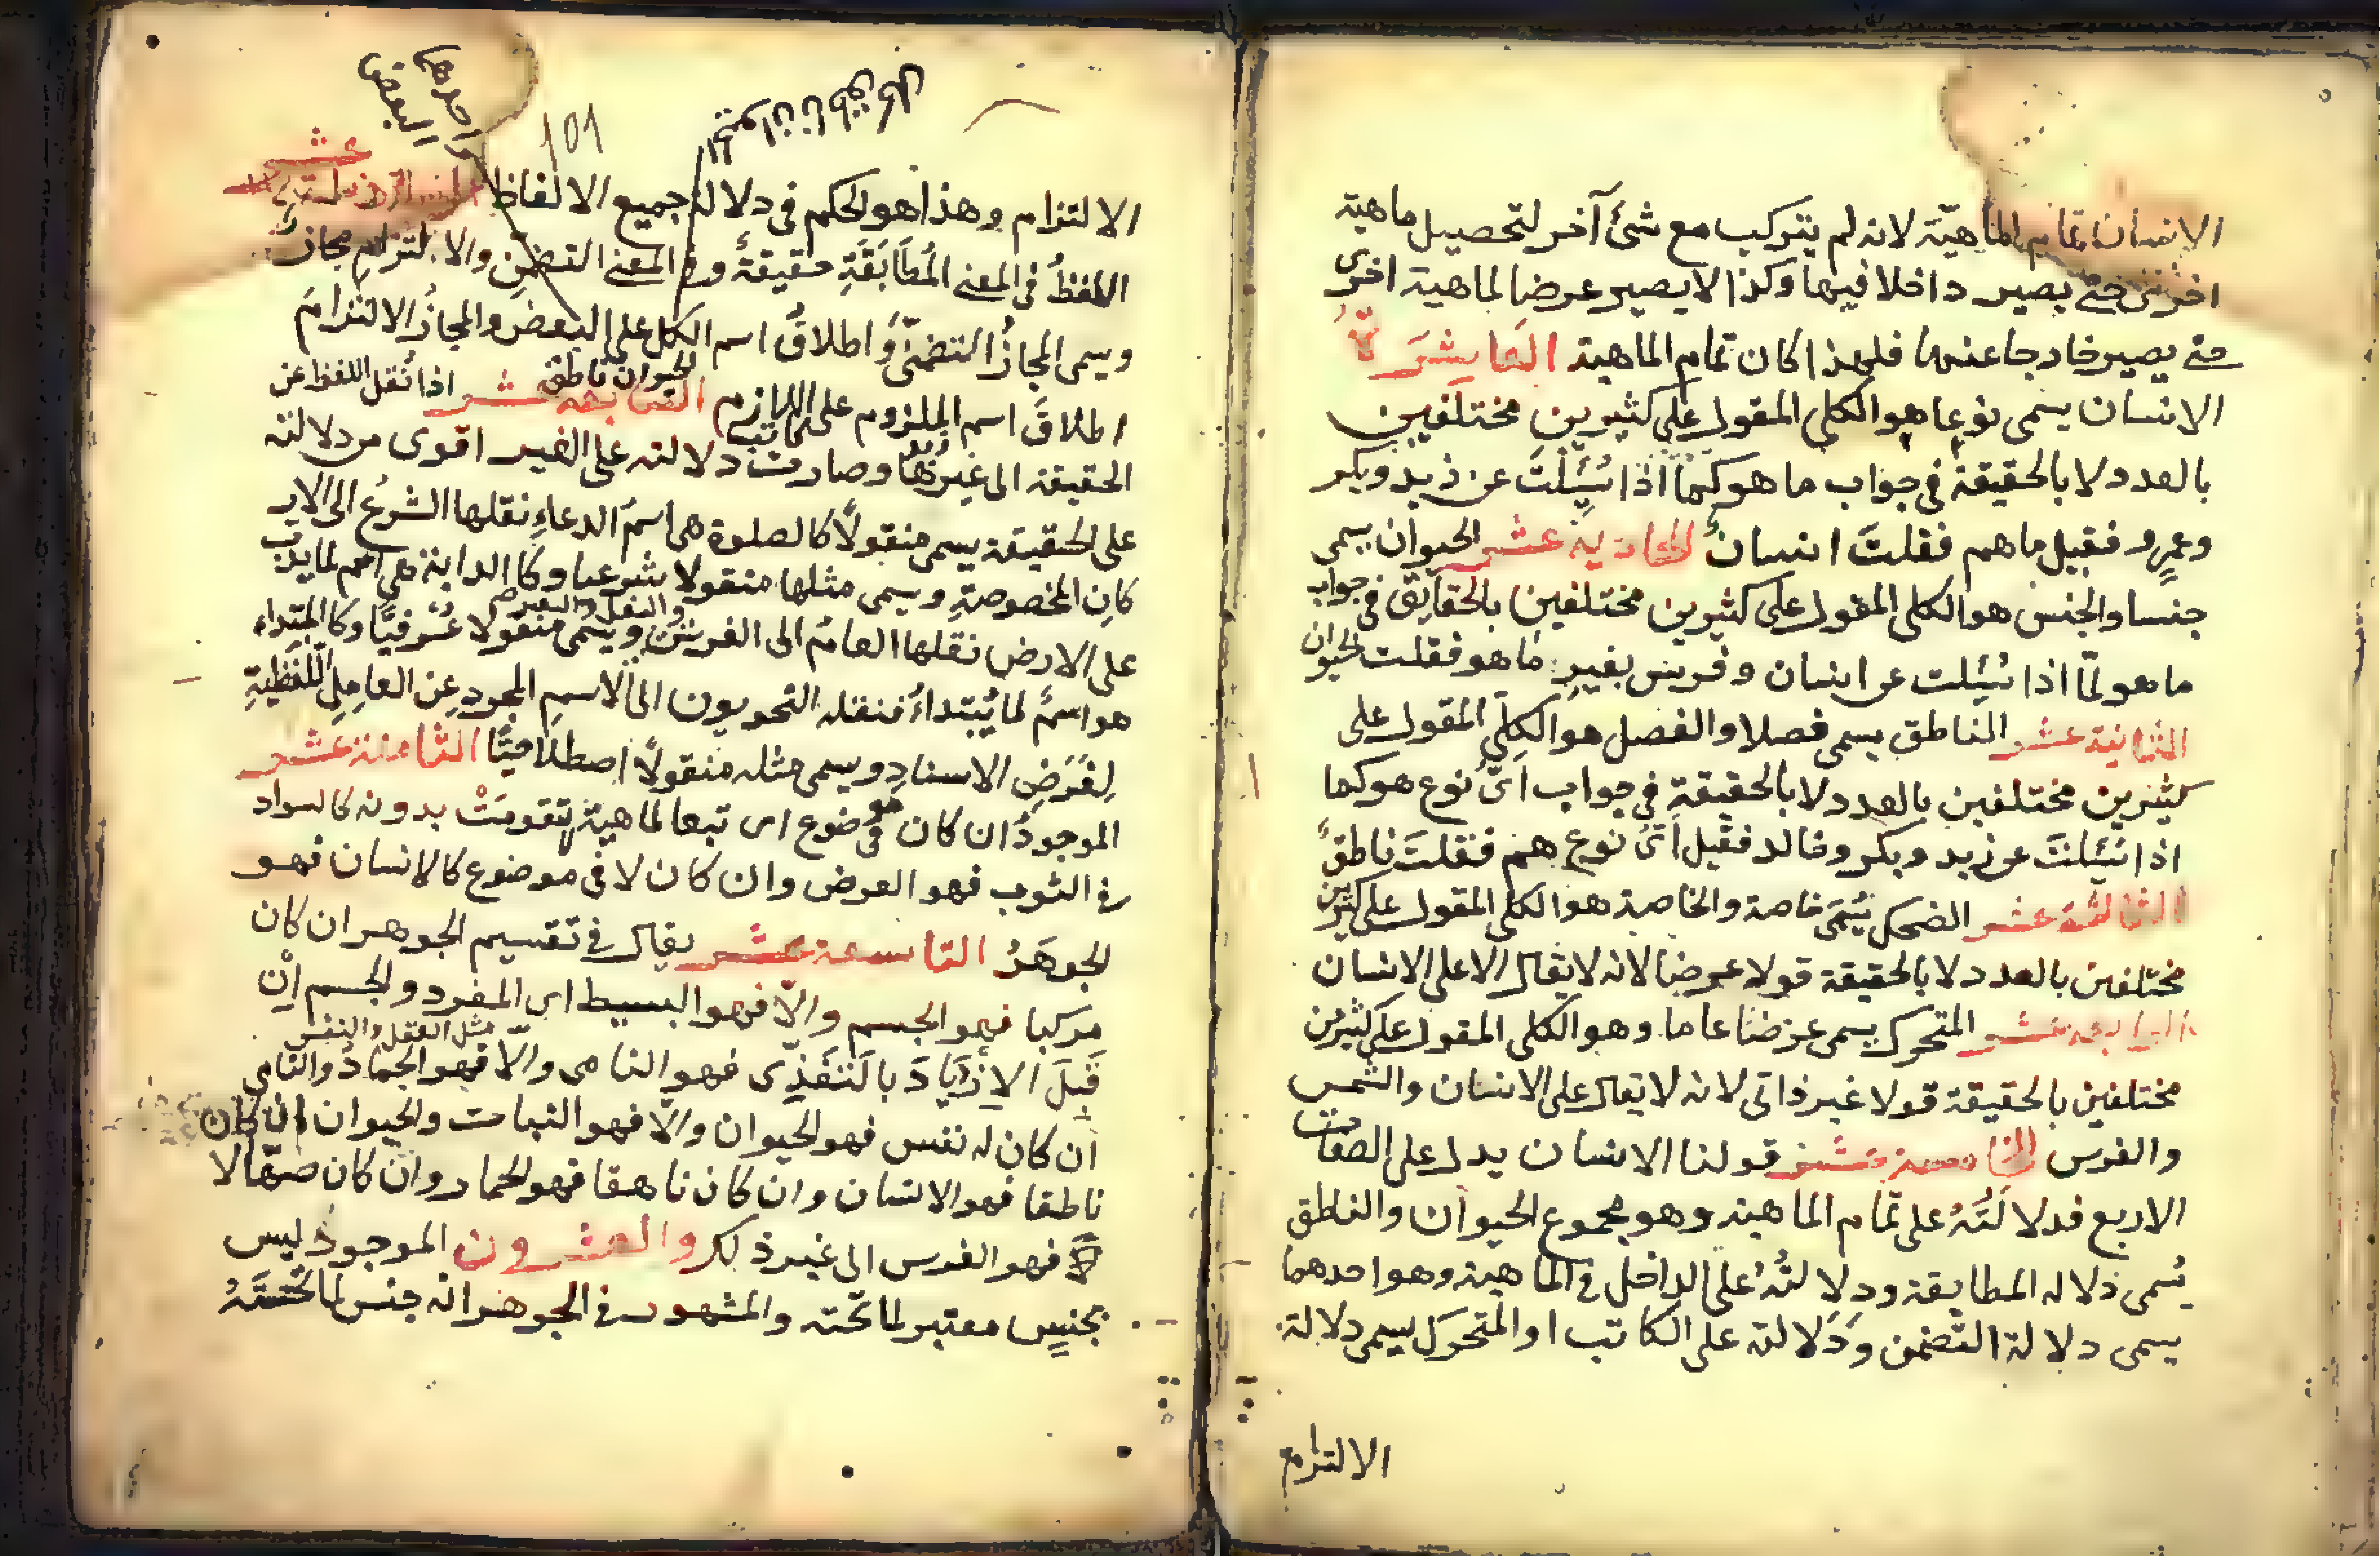 الانسان تمام الماهيّة لانه لم يتركب مع شئ آخر لتحصيل ماهية
اخرى حتى يصير داخلا فيها وكذا لا يصير عرضا لماهية اخرى
حتى يصير خارجا عنها فلهذا كان تمام الماهية العاشرة
الانسان يسمى نوعا هو الكلى المقول على كثيرين مختلفين
بالعدد لا بالحقيقة فى جواب ما هو كما اذا سُئِلْتَ عن زيد وبكر
وعمرٍو فقيل ما هم فقلتَ انسانٌ الحادية عشر الحيوان يسمى
جنسا والجنس هو الكلى المقول على كثيرين مختلفين بالحقايق فى جواب
ما هو لمّا اذا سُئِلت عن انسان وفرس بغيرِ ما هو فقلت الحيوان
الثانية عشر الناطق يسمى فصلا والفصل هو الكلى المقول على
كثيرين مختلفين بالعدد لا بالحقيقة فى جواب اىُّ نوع هو كما
اذا سُئلتَ عن زيد وبكر وخالد فقيل اىُّ نوع هم فقلتَ ناطقٌ
الثالثة عشر الضحك يُسَمَّى خاصة والخاصة هو الكلى المقول على كثيرين
مختلفين بالعدد لا بالحقيقة قولا عرضا لانه لا يقال الا على الانسان
الرابعة عشر المتحرك يسمى عرضا عاما وهو الكلى المقول على كثيرين
مختلفين بالحقيقة قولا غير ذاتى لانه لا يقال على الانسان والشمس
والفرس الخامسة عشر قولنا الانسان يدل على الصفات
الاربع فدلالَتُهُ على تمام الماهية وهو مجموع الحيوان والناطق
يُسمى دلاله المطابقة ودلالتُهُ على الداخل فى الماهية وهو احدهما
يسمى دلالة التضمن ودَلالته على الكاتب او المتحرك يسمى دلالة
الالتزام
احدهما
البعض
101
الالتزام وهذا هو الحكم فى دلالة جميع الالفاظ
عشر
اللفظُ فى المعنى المُطَابَقَةِ حقيقةً وفى المعنى التضمنِ والالتزامِ مجازٌ
ويسمى المجازُ التضمنىّ واطلاقُ اسم الكل على البعض والمجازُ الالتزامَ
الحيوان ناطق
اطلاقَ اسم الملزوم على اللازم السابعة عشر اذا نُقل اللفظ عن
كاتب
الحقيقة الى غيرها وصارت دلالته على الغير اقوى من دلالته
على الحقيقة يسمى منقولًا كالصلوة هى اسمُ الدعاءِ نقلها الشرعُ الى الار
كانِ المخصوصةِ ويسمى مثلها منقولا شرعيا وكالدابة هى اسم لما يدب
والبغل والبعير
على الارض نقلها العامُ الى الفرس ويسمى منقولا عُرفيًّا وكالمبتداء
هو اسمٌ لما يُبْتداءُ فنقله النحويون الى الاسمِ المجردِ عنِ العاملِ اللفظيةِ
لِغَرَضِ الاسنادِ ويسمى مثله منقولًا اصطلاحيًّا الثامنة عشر
الموجودُ ان كان فى موضوع اى تبعا لماهية تقومَتْ بدونه كالسواد
فى الثوب فهو العرض وان كان لا فى موضوع كالانسان فهو
الجوهَرُ التاسعة عشر يقال فى تقسيم الجوهر ان كان
مركبا فهو الجسم والّا فهو البسيط اى المفرد والجسم اِنْ
مثل العقل والنفس
قَبِلَ الازْدِيَادَ بالتغذى فهو النامى والّا فهو الجمادُ والنامى
اِن كان له نفس فهو الحيوان والّا فهو النبات والحيوان ان كان
ناطقا فهو الانسان وان كان ناهقا فهو الحمار وان كان صهّالا
فهو الفرس الى غير ذلك والعشرون الموجود ليس
بجنسٍ معتبر لما تحته والمشهور فى الجوهر انه جنس لما تحْتَهُ